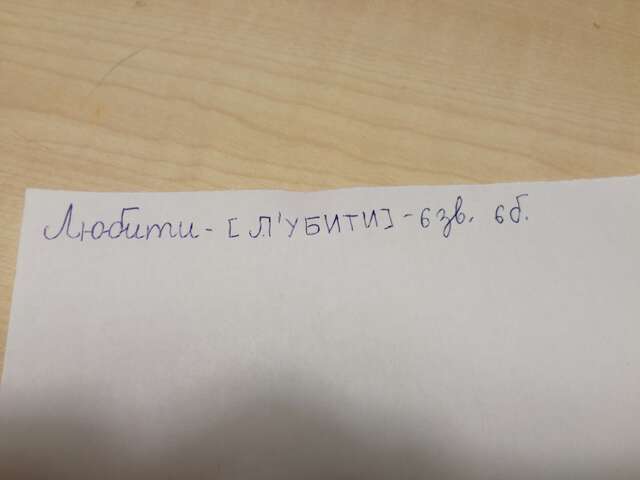 Любити - [ Л'УБИТИ] - 6 зв. 6 б.